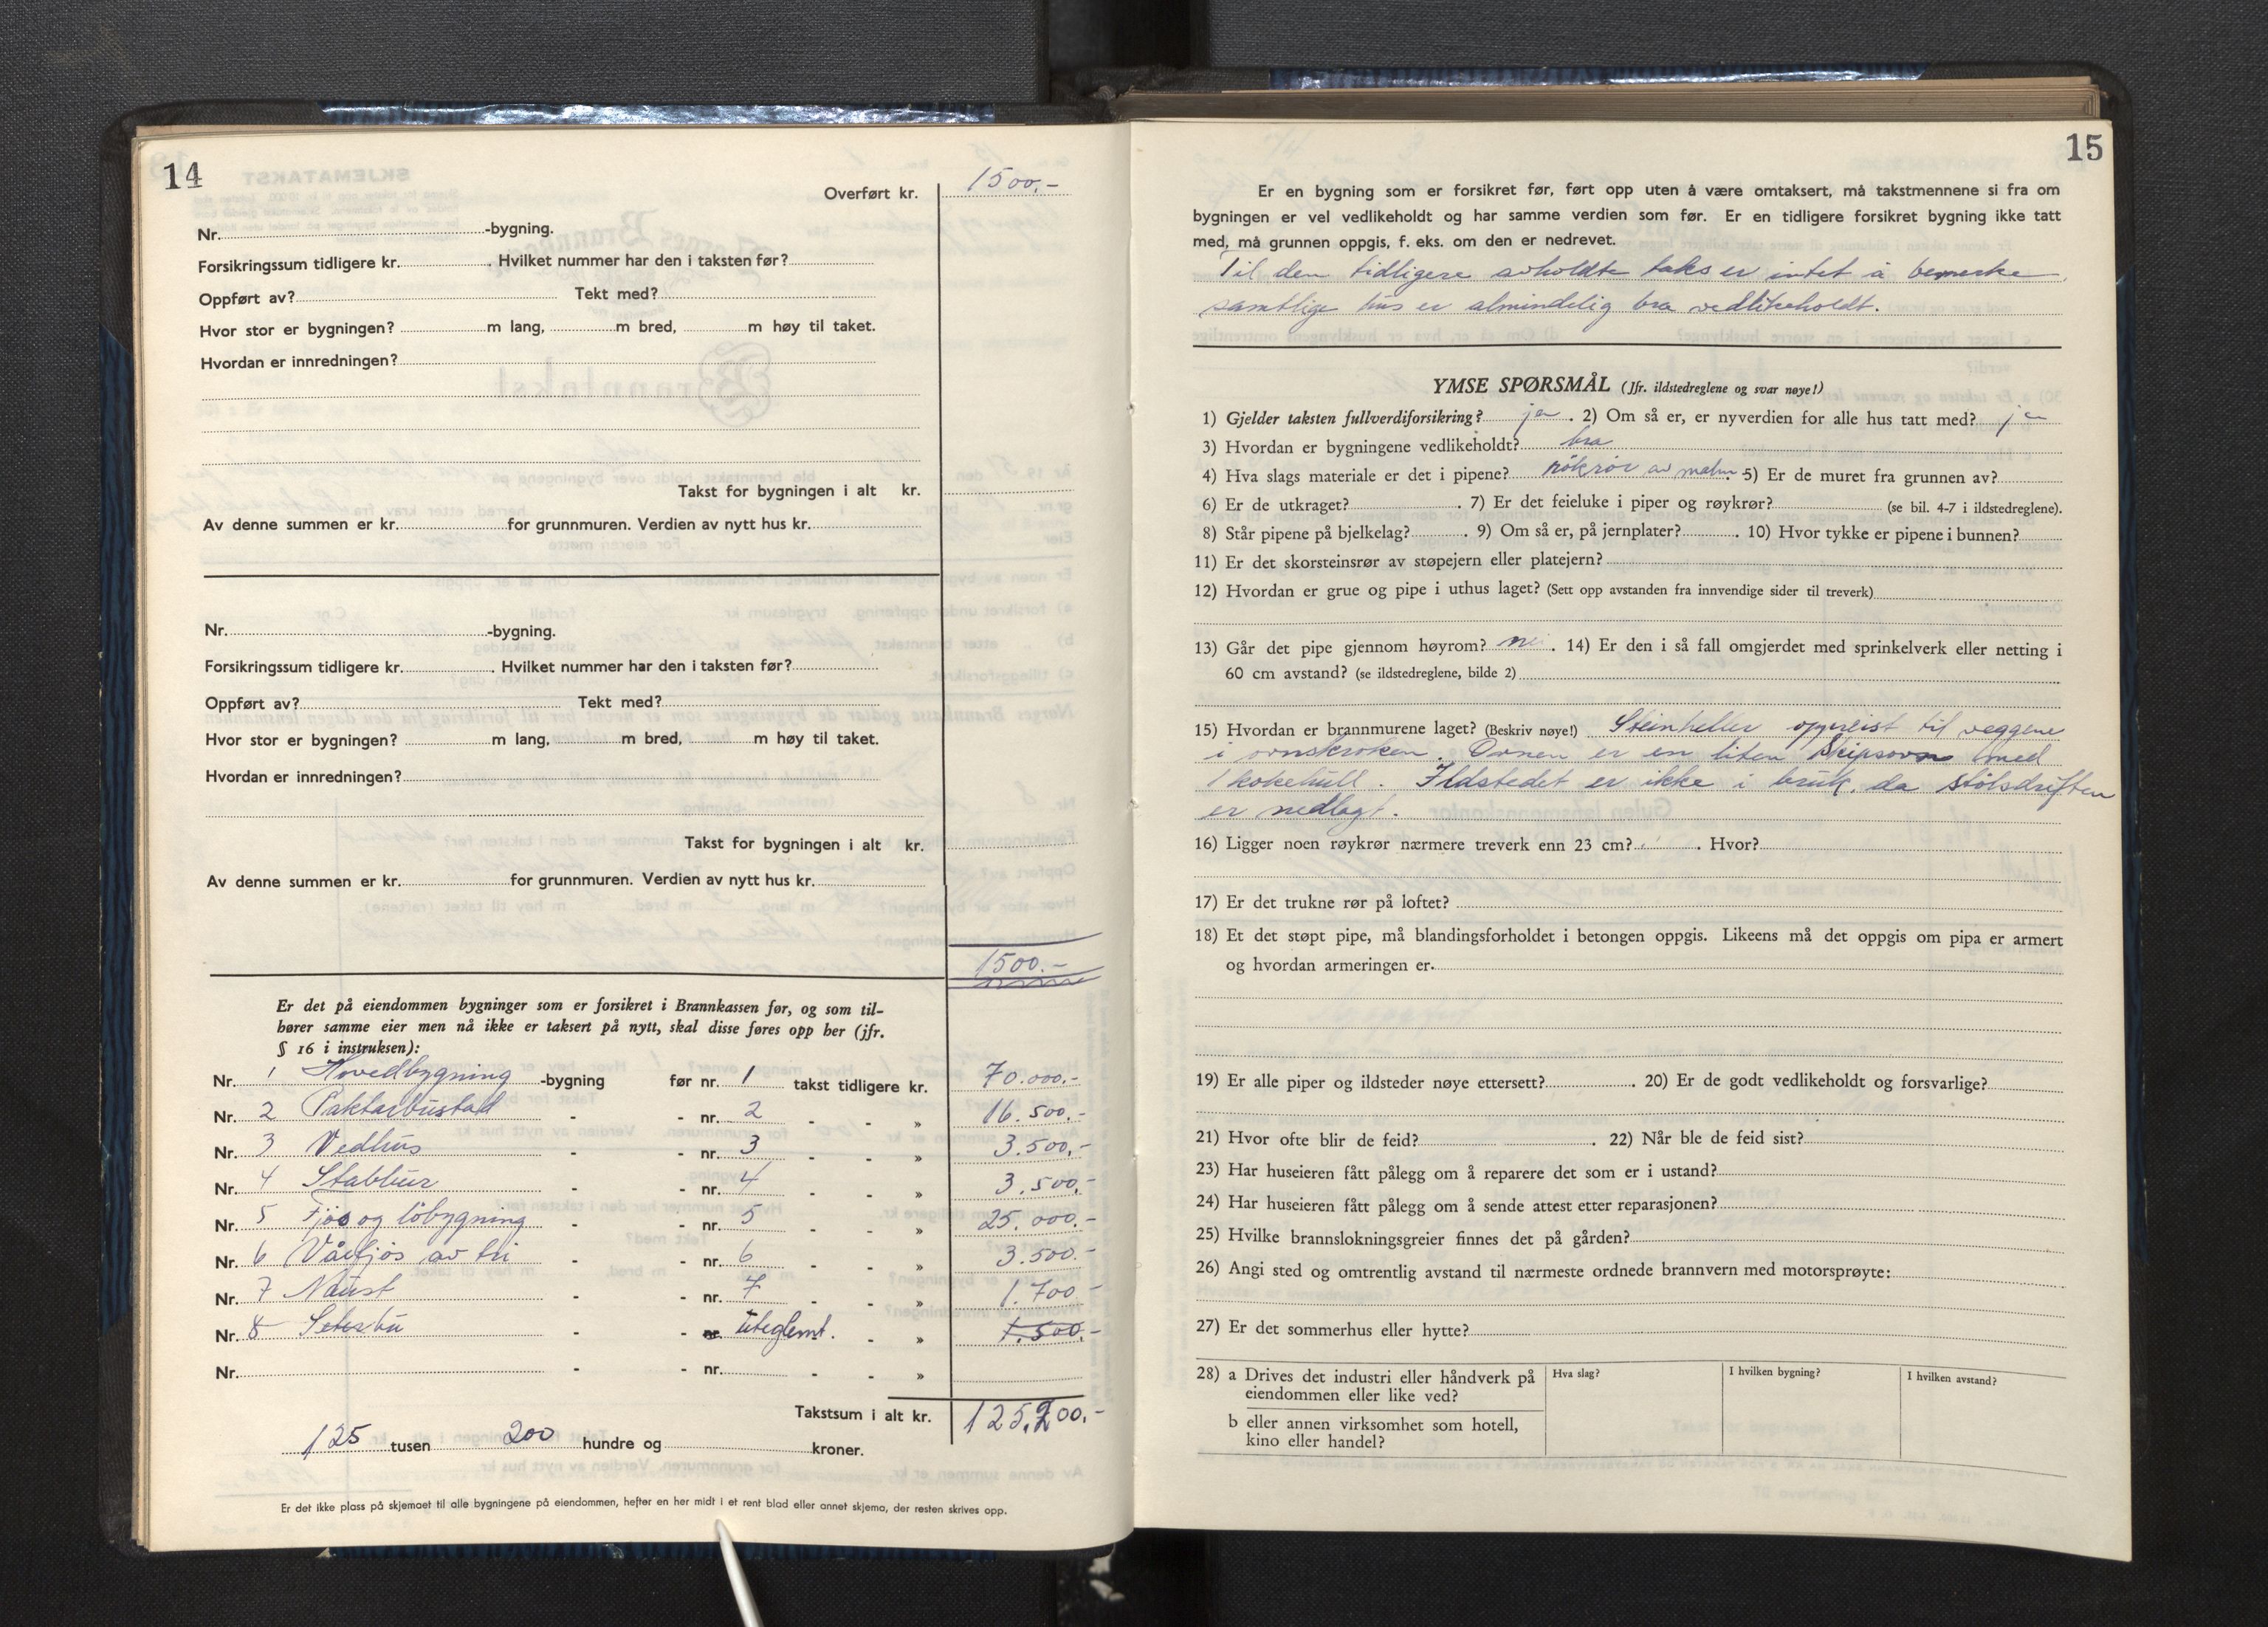 14
Overført kr. 1500.-
Nr. -bygning.
Forsikringssum tidligere kr. . Hvilket nummer har den i taksten før?
Oppført av? Tekt med?
Hvor stor er bygningen? m lang, m bred, m høy til taket.
Hvordan er innredningen?
Takst for bygningen i alt kr.
Av denne summen er kr. for grunnmuren. Verdien av nytt hus kr.
Nr. -bygning.
Forsikringssum tidligere kr. . Hvilket nummer har den i taksten før?
Oppført av? Tekt med?
Hvor stor er bygningen? m lang, m bred, m høy til taket.
Hvordan er innredningen?
Takst for bygningen i alt kr.
Av denne summen er kr. for grunnmuren. Verdien av nytt hus kr.
1500.-
Er det på eiendommen bygninger som er forsikret i Brannkassen før, og som til-
hører samme eier men nå ikke er taksert på nytt, skal disse føres opp her (jfr.
§ 16 i instruksen):
Nr. 1 Hovedbygning -bygning før nr. 1 takst tidligere kr. 70.000.-
Nr. 2 Paktarbustad - - nr. 2 - - » 16.500.-
Nr. 3 Vedhus - - nr. 3 - - » 3.500.-
Nr. 4 Stabbur - - nr. 4 - - » 3.500.-
Nr. 5 Fjos og löbygning - - nr. 5 - - » 25.000.-
Nr. 6 Vårfjös av tri - - nr. 6 - - » 3.500.-
Nr. 7 Naust - - nr. 7 - - » 1.700-
Nr. 8 Seterbu - - nr. uteglemt. - » 1.500.-
Nr. - - nr. - - »
Takstsum i alt kr. 125.200.-
125 tusen 200 hundre og kroner.
Er det ikke plass på skjemaet til alle bygningene på eiendommen, hefter en her midt i et rent blad eller annet skjema, der resten skrives opp.
15
Er en bygning som er forsikret før, ført opp uten å være omtaksert, må takstmennene si fra om
bygningen er vel vedlikeholdt og har samme verdien som før. Er en tidligere forsikret bygning ikke tatt
med, må grunnen oppgis, f. eks. om den er nedrevet.
Til den tidligere avholdte taks er intet å bemerke,
samtlige hus er almindelig bra vedlikeholdt.
YMSE SPØRSMÅL (Jfr. ildstedreglene og svar nøye!)
1) Gjelder taksten fullverdiforsikring? ja . 2) Om så er, er nyverdien for alle hus tatt med? ja
3) Hvordan er bygningene vedlikeholdt? bra
4) Hva slags materiale er det i pipene? rökrör av malm. 5) Er de muret fra grunnen av?
6) Er de utkraget? . 7) Er det feieluke i piper og røykrør? (se bil. 4-7 i ildstedreglene).
8) Står pipene på bjelkelag? . 9) Om så er, på jernplater? . 10) Hvor tykke er pipene i bunnen?
11) Er det skorsteinsrør av støpejern eller platejern?
12) Hvordan er grue og pipe i uthus laget? (Sett opp avstanden fra innvendige sider til treverk)
13) Går det pipe gjennom høyrom? nei . 14) Er den i så fall omgjerdet med sprinkelverk eller netting i
60 cm avstand? (se ildstedreglene, bilde 2)
15) Hvordan er brannmurene laget? (Beskriv nøye!) Steinheller oppreist til veggene
i ovnskroken. Ovnen er en liten Skipsovn med
1 kokehull. Ildstedet er ikke i bruk, da stölsdriften
er nedlagt.
16) Ligger noen røykrør nærmere treverk enn 23 cm? . Hvor?
17) Er det trukne rør på loftet?
18) Et det støpt pipe, må blandingsforholdet i betongen oppgis. Likeens må det oppgis om pipa er armert
og hvordan armeringen er.
19) Er alle piper og ildsteder nøye ettersett? . 20) Er de godt vedlikeholdt og forsvarlige?
21) Hvor ofte blir de feid? . 22) Når ble de feid sist?
23) Har huseieren fått pålegg om å reparere det som er i ustand?
24) Har huseieren fått pålegg om å sende attest etter reparasjonen?
25) Hvilke brannslokningsgreier finnes det på gården?
26) Angi sted og omtrentlig avstand til nærmeste ordnede brannvern med motorsprøyte:
27) Er det sommerhus eller hytte?
28) a Drives det industri eller håndverk på
eiendommen eller like ved?
Hva slag?
I hvilken bygning?
I hvilken avstand?
b eller annen virksomhet som hotell,
kino eller handel?